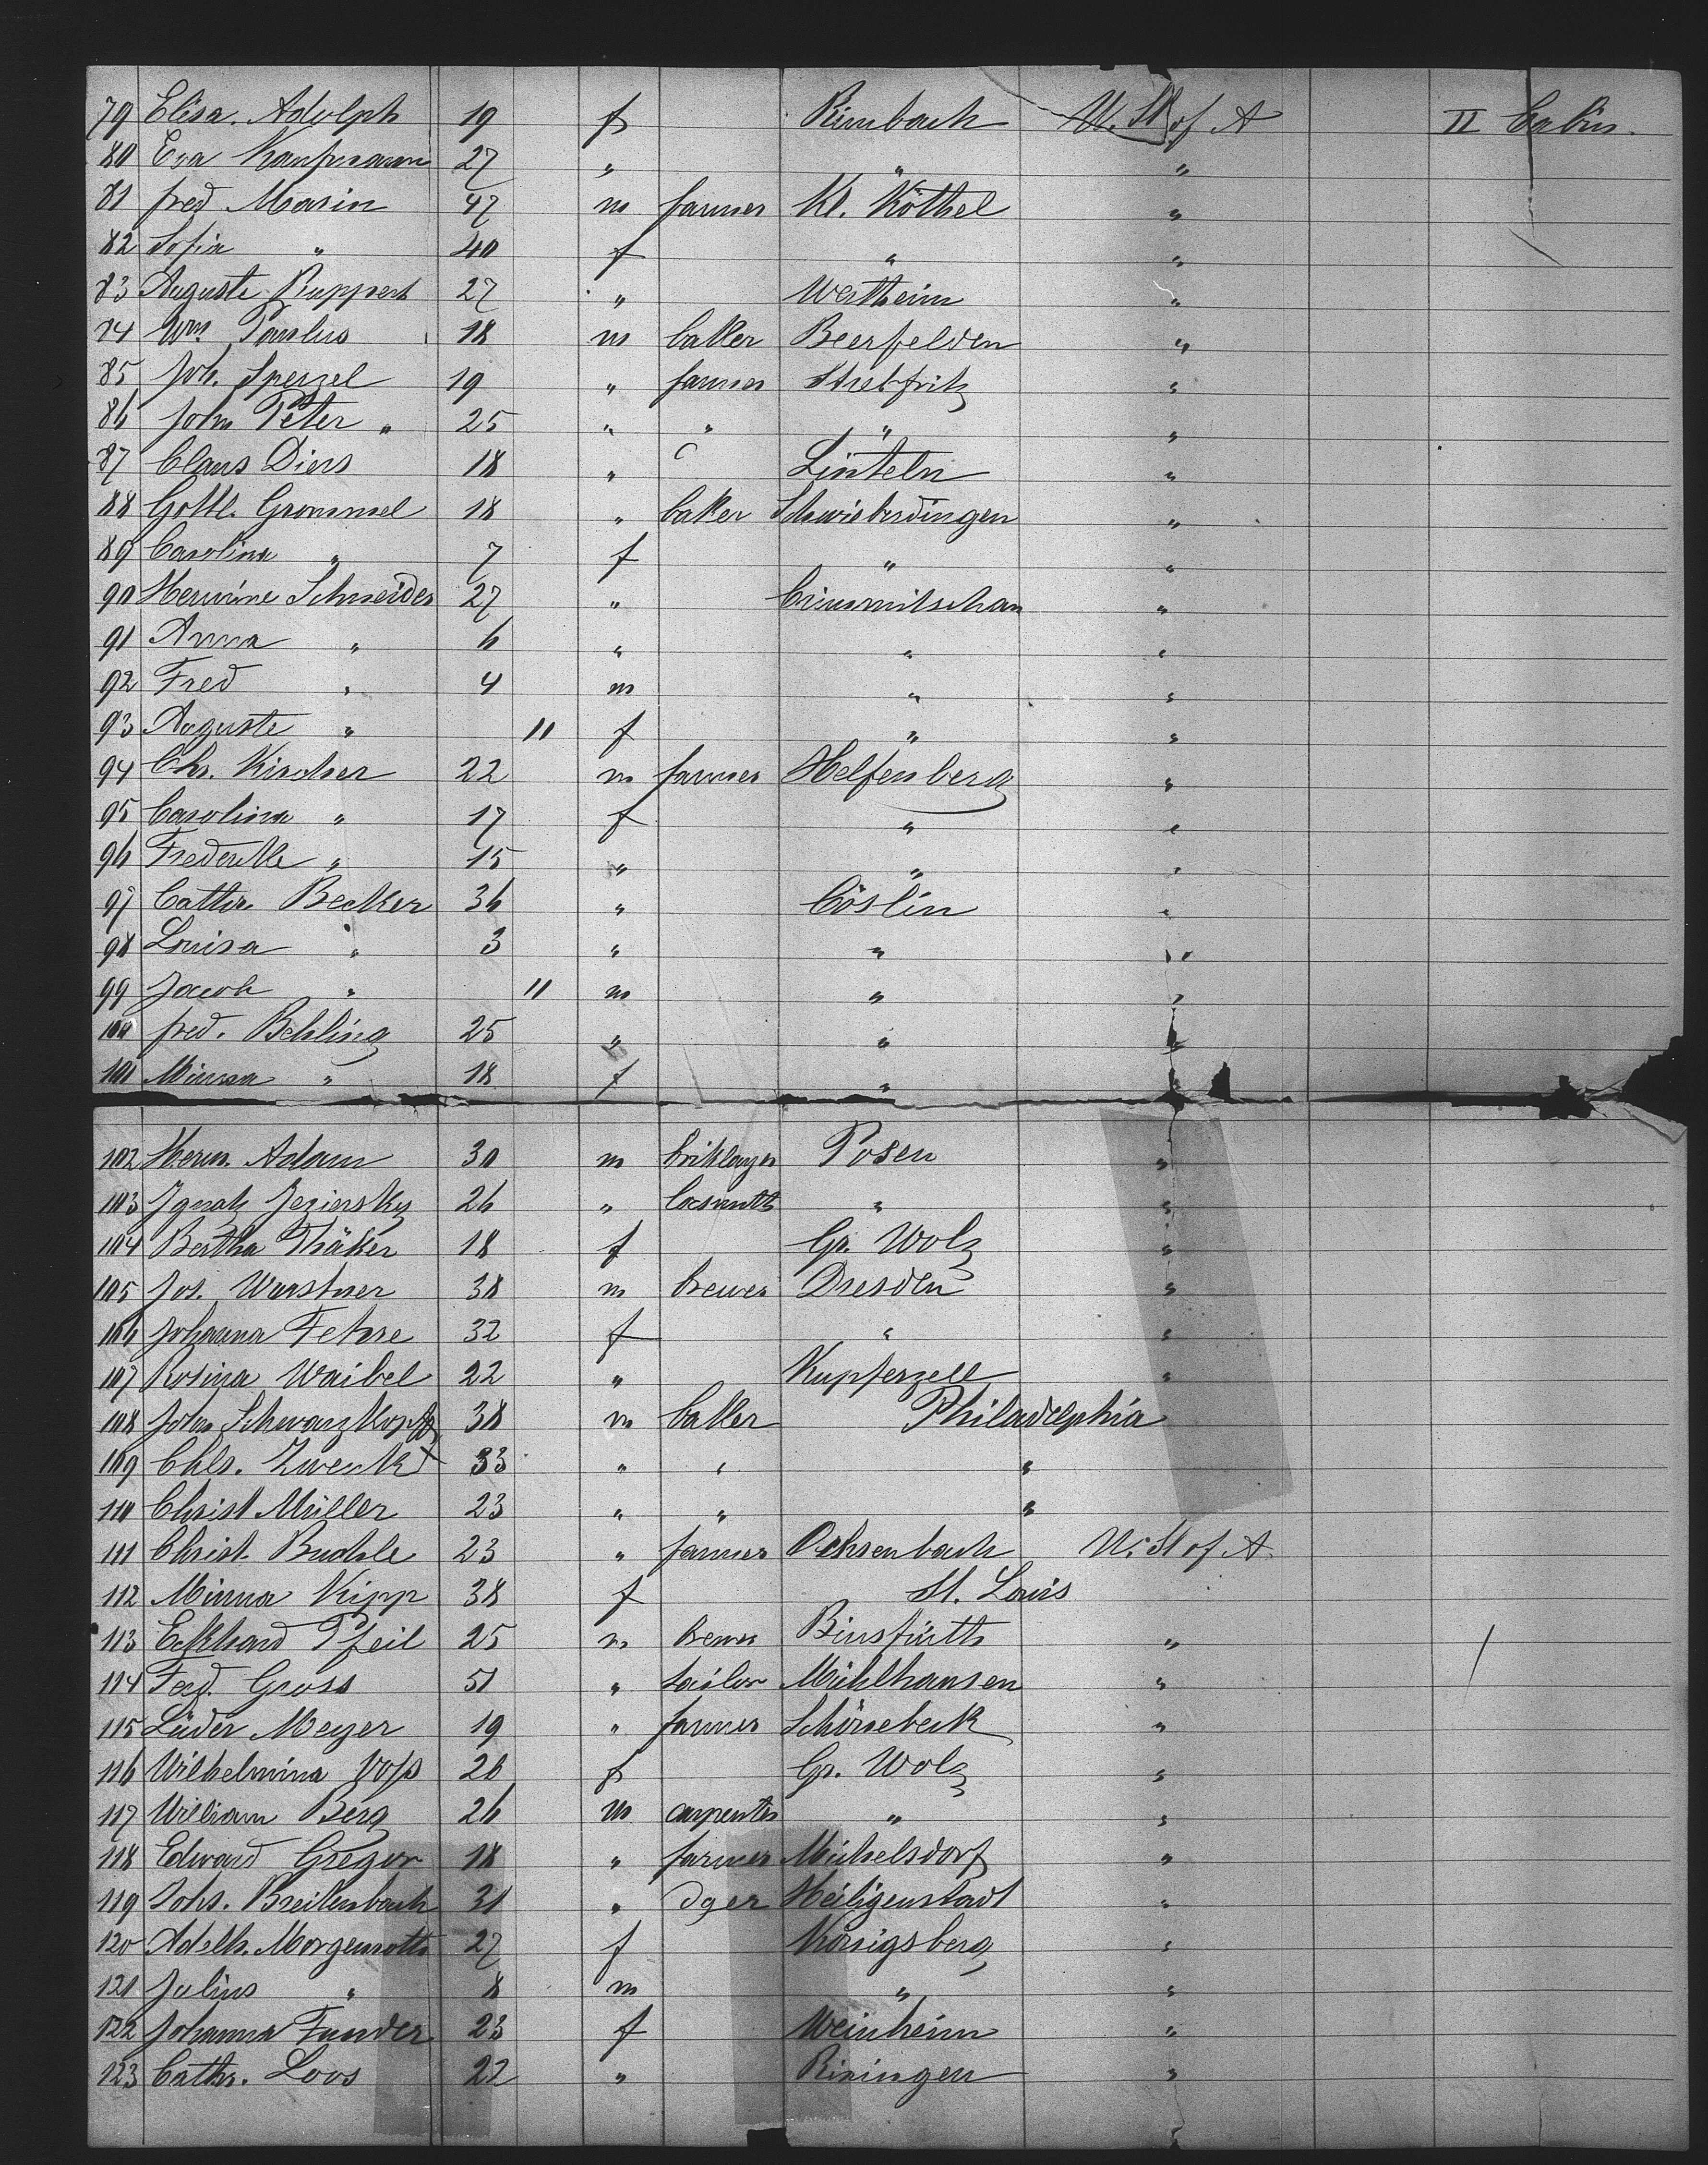 79 Elisa. Adolph 19 f Rimbach U. St of A II Cabin.
80 Eva Kaufmann 27 " " "
81 fred Marin 47 m farmer Kl. Köthel "
82 Sofia " 40 f " "
83 Auguste Ruppert 27 " Wertheim "
84 Wm. Paulus 18 m baker Beerfelden "
85 Joh. Sperzel 19 " farmer "
86 John Peter " 25 " " " "
87 Claus Diers 18 " " Linteln "
88 Gottl. Grommel 18 " baker Schwieberdingen "
89 Carolina " 7 f " "
90 Hermine Schneider 27 " Crimmitschau "
91 Anna " 6 " " "
92 Fred " 4 m " "
93 Auguste " 11 f " "
94 Chr. Kircher 22 m farmer Helfenberg "
95 Carolina " 17 f " "
96 Frederike " 15 " " "
97 Cathr. Becker 36 " Cöslin "
98 Louisa " 3 " " "
99 Jacob " 11 m " "
100 fred. Behling 25 " " "
101 Minna " 18 f " "
102 Herm. Adam 30 m briklayer Posen "
103 Ignatz Jeziersky 26 " locsmith " "
104 Bertha Thäker 18 f Gr. Wolz "
105 Jos. Wurstner 38 m brewer Dresden "
106 Johanna Fehse 32 f " "
107 Rosina Waibel 22 " Kupferzell "
108 John Schwarzkopf 38 m baker Philadelphia
109 Chls. Zwenk 33 " " "
110 Christ Müller 23 " " "
111 Christ. Buchle 23 " farmer Ochsenbach U. St of A.
112 Minna Kipp 38 f St. Louis
113 Eckhard Pfeil 25 m brewer Binsfürth "
114 Ferd. Gross 51 " tailor Mühlhausen "
115 Lüder Meyer 19 " farmer Schönebeck "
116 Wilhelmina Voß 26 f Gr. Wolz "
117 William Berg 26 m carpenter " "
118 Edward Gregor 18 " farmer Michelsdorf "
119 Johs. Breitenbach 31 " dyer Heiligenstadt "
120 Adelh. Morgenroth 27 f Königsberg "
121 Julius " 8 m " "
122 Johanna Funder 23 f Weinheim "
123 Cathr. Loos 22 " Rixingen "